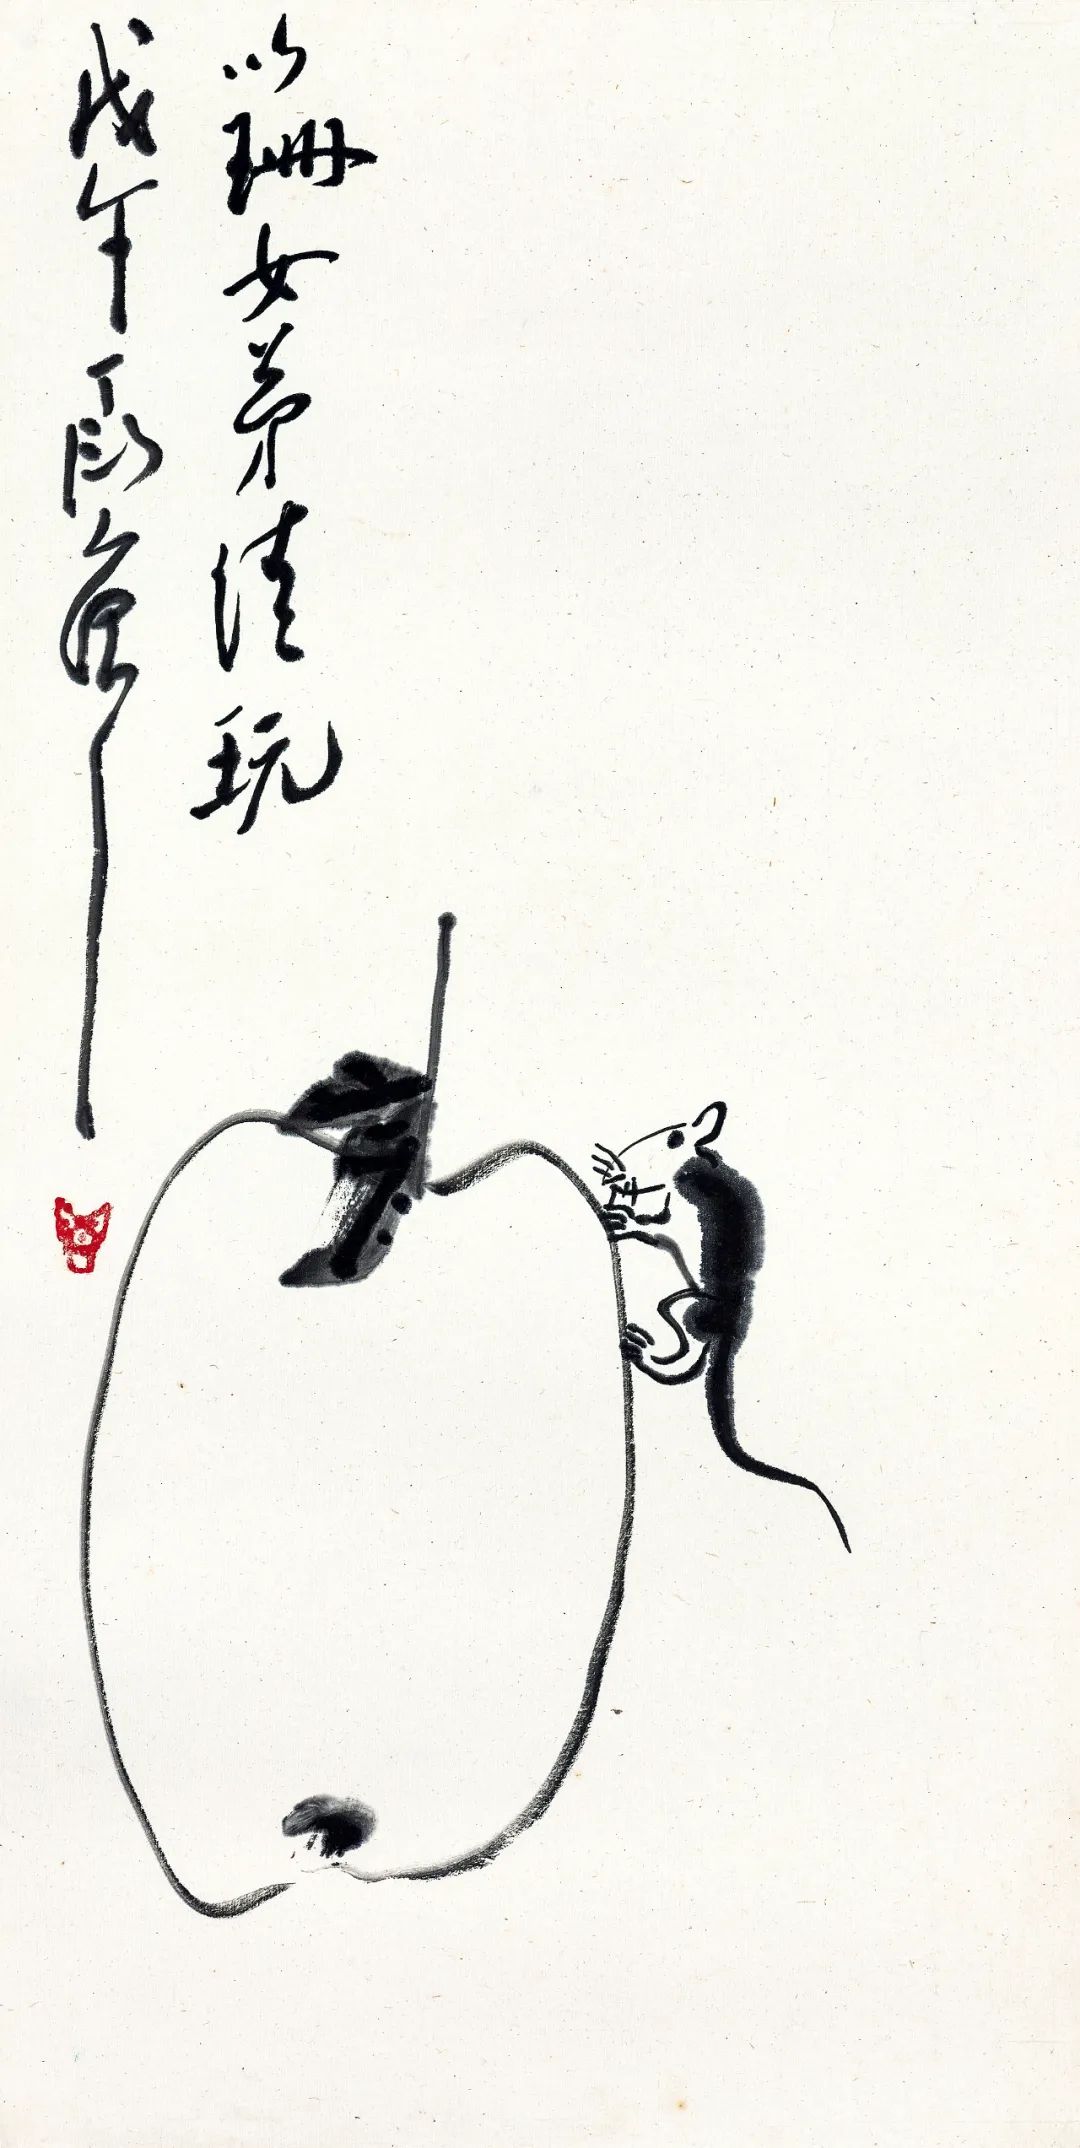 以珊女弟清玩
戊午丁衍庸